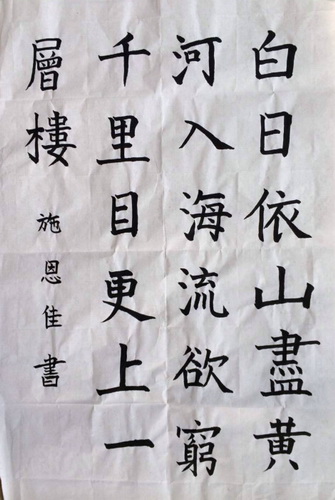 白日依山盡黄
河入海流欲窮
千里目更上一
層樓
施恩佳書